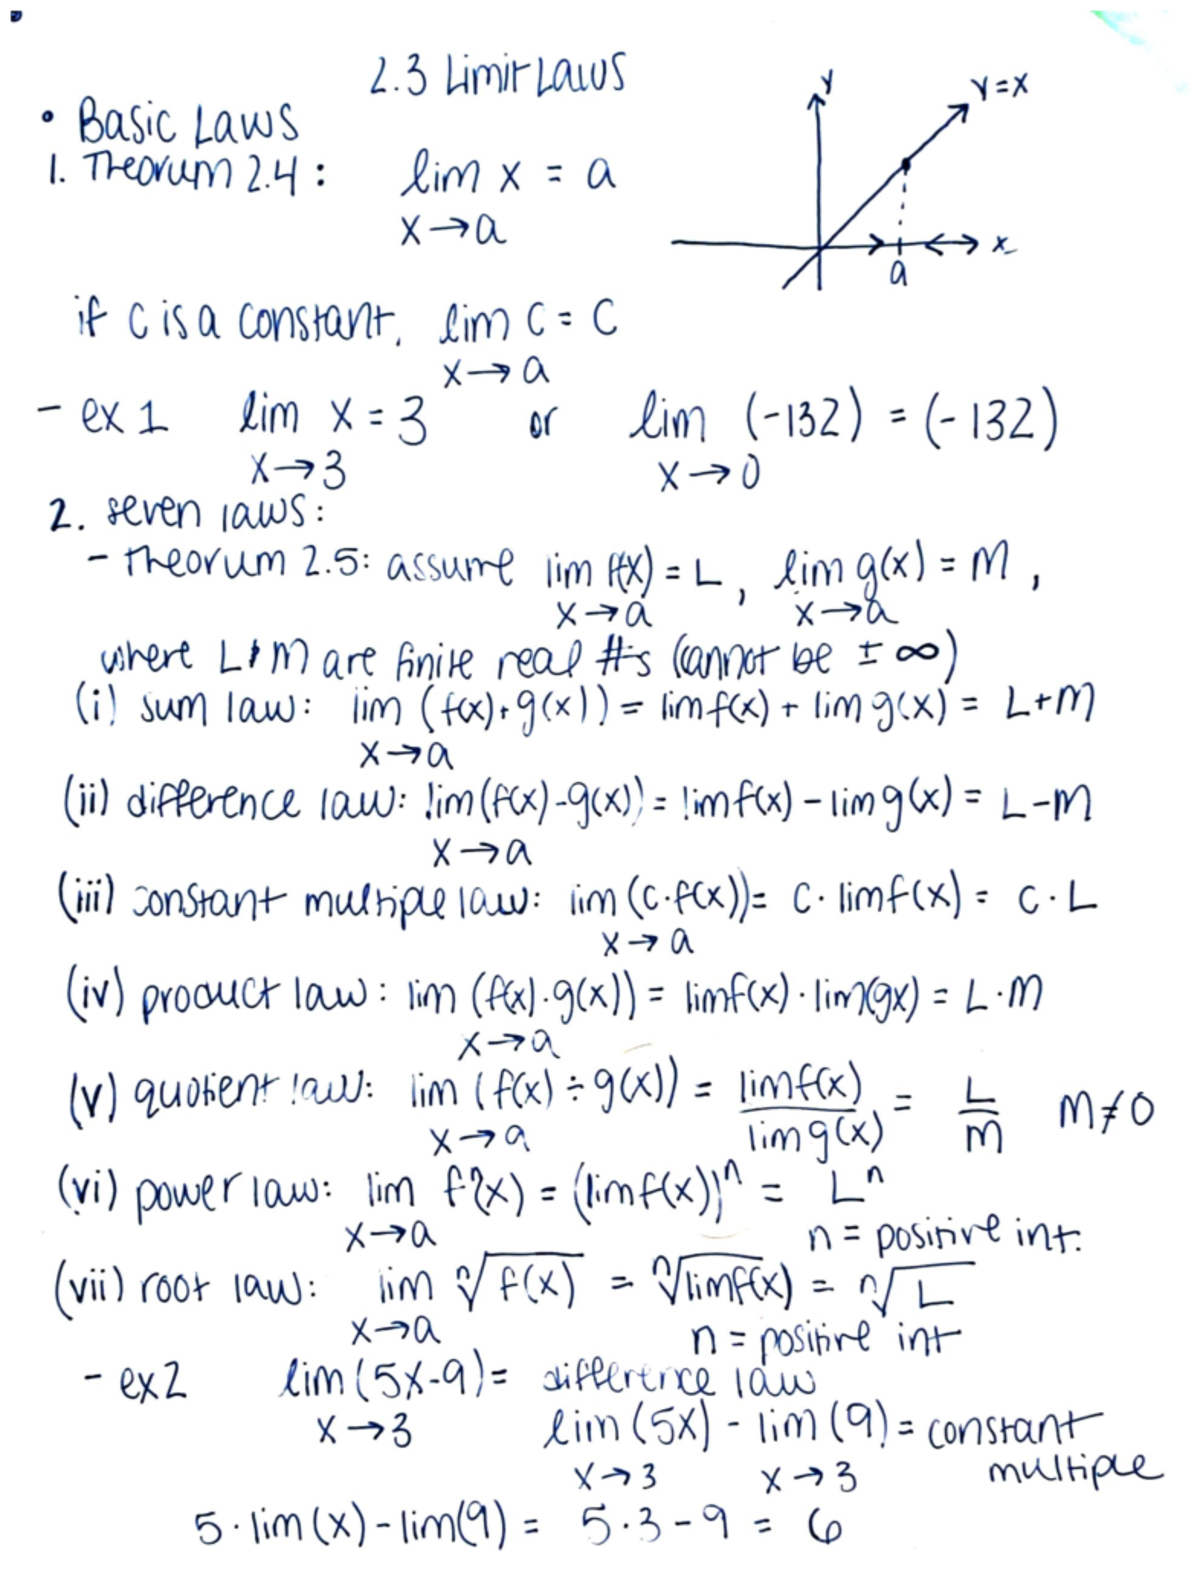 2.3 Limit Laws
y
y=x
• Basic Laws
1. Theorum 2.4: lim x = a
x→a
x
a
if c is a constant, lim c = c
x→a
- ex 1 lim x = 3 or lim (-132) = (-132)
x→3 x→0
2. seven laws:
- theorum 2.5: assume lim f(x) = L, lim g(x) = M,
x→a x→a
where L & M are finite real #s (cannot be ± ∞)
(i) sum law: lim (f(x)+g(x)) = lim f(x) + lim g(x) = L+M
x→a
(ii) difference law: lim(f(x)-g(x)) = lim f(x) - lim g(x) = L-M
x→a
(iii) constant multiple law: lim (c·f(x)) = c·lim f(x) = c·L
x→a
(iv) product law: lim (f(x)·g(x)) = lim f(x)·lim(gx) = L·M
x→a
(v) quotient law: lim (f(x) ÷ g(x)) = lim f(x) / lim g(x) = L / M M≠0
x→a
(vi) power law: lim fⁿ(x) = (lim f(x))ⁿ = Lⁿ
x→a n = positive int.
(vii) root law: lim ⁿ√f(x) = ⁿ√lim f(x) = ⁿ√L
x→a n = positive int
- ex2 lim (5x-9) = difference law
x→3 lim (5x) - lim (9) = constant
x→3 x→3 multiple
5·lim (x) - lim(9) = 5·3-9 = 6